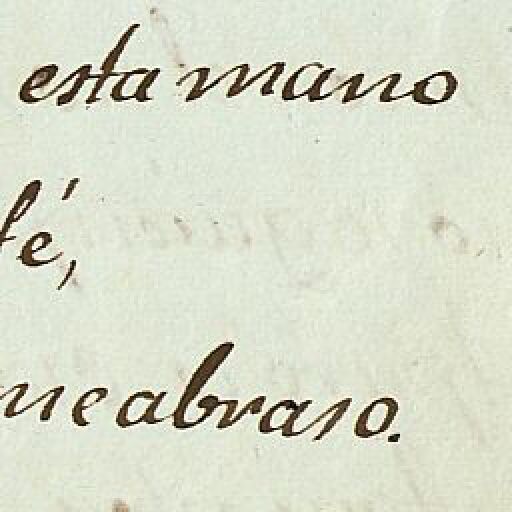 esta mano
fé,
me abraso.